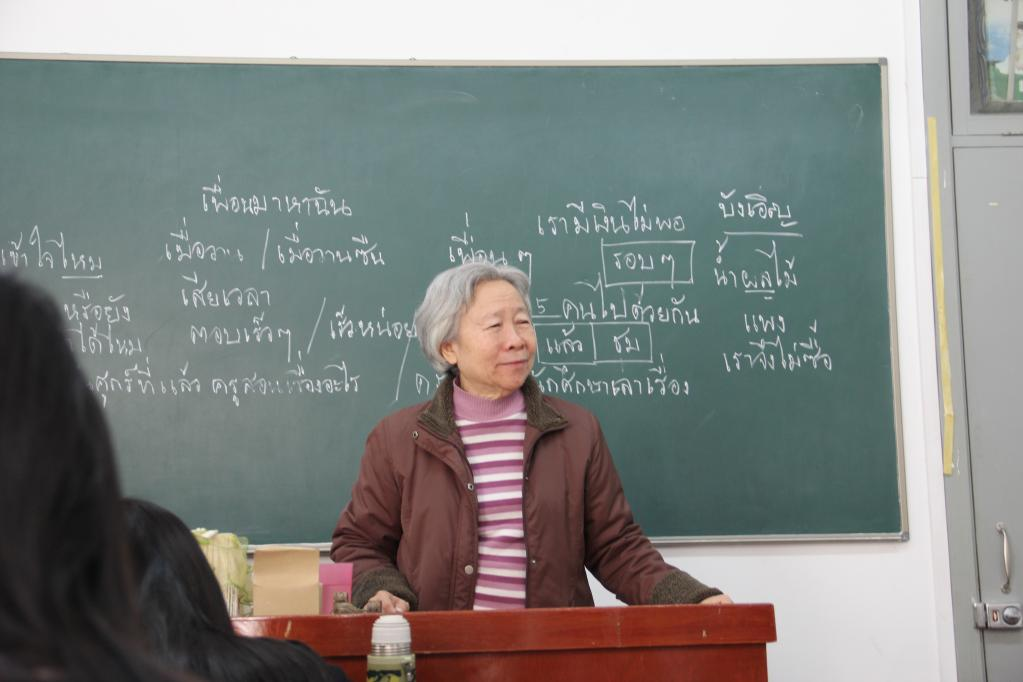 เพื่อนมาหาฉัน
เข้าใจไหม
เมื่อวาน / เมื่อวานซืน
หรือยัง
เสียเวลา
ได้ไหม
ตอบเร็วๆ / เร็วหน่อย
ศุกร์ที่แล้ว ครูสอนเรื่องอะไร /
เพื่อนๆ
เรามีเงินไม่พอ
รอบๆ
5 คนไปด้วยกัน
แล้ว ชม
นักศึกษาเล่าเรื่อง
บังเอิญ
น้ำผลไม้
แพง
เราจึงไม่ซื้อ